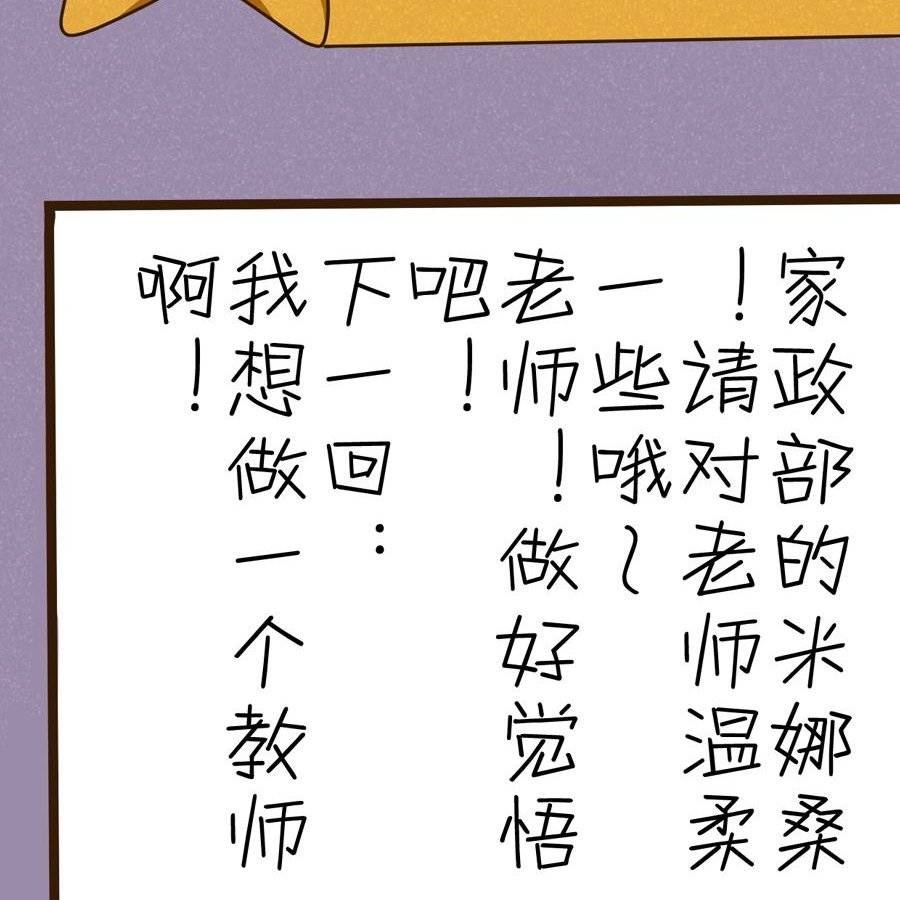 家政部的米娜桑
！请对老师温柔
一些哦～
老师！做好觉悟
吧！
下一回：
我想做一个教师
啊！